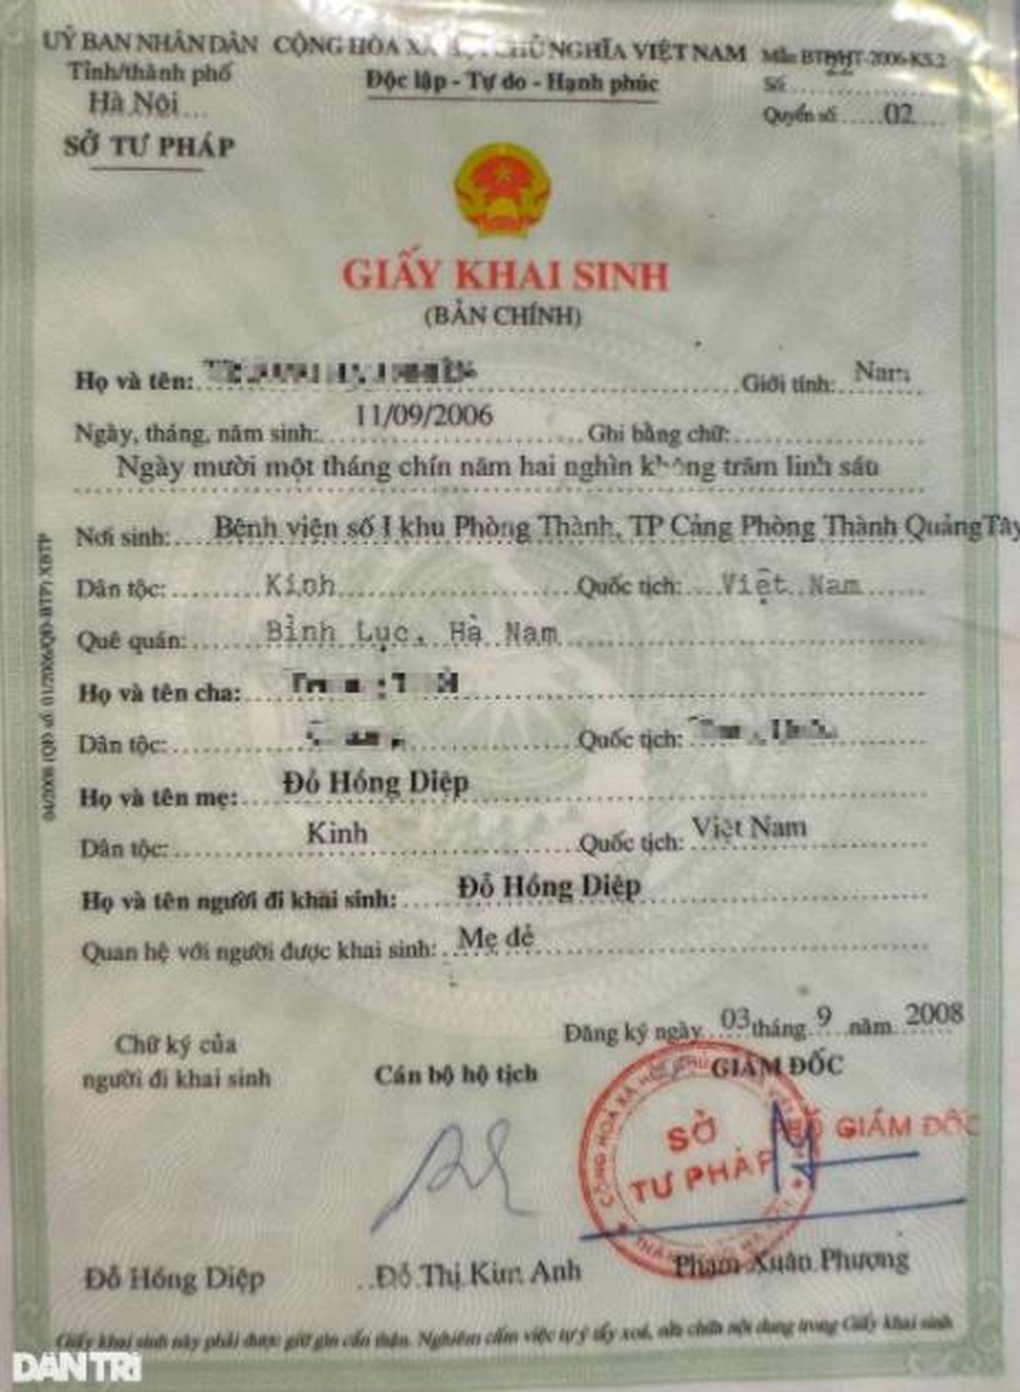 UỶ BAN NHÂN DÂN CỘNG HÒA XÃ CHỦ NGHĨA VIỆT NAM Mẫu BTP/HT-2006-KS.2
Tỉnh/thành phố Độc lập - Tự do - Hạnh phúc Số 22
Hà Nội Quyển số 02
SỞ TƯ PHÁP
GIẤY KHAI SINH
(BẢN CHÍNH)
Họ và tên: Giới tính: Nam
Ngày, tháng, năm sinh: 11/09/2006 Ghi bằng chữ:
Ngày mười một tháng chín năm hai nghìn không trăm linh sáu
Nơi sinh: Bệnh viện số I khu Phòng Thành, TP Cảng Phòng Thành Quảng Tây
Dân tộc: Kinh Quốc tịch: Việt Nam
Quê quán: Bình Lục, Hà Nam
Họ và tên cha:
Dân tộc: Quốc tịch:
Họ và tên mẹ: Đỗ Hồng Diệp
Dân tộc: Kinh Quốc tịch: Việt Nam
Họ và tên người đi khai sinh: Đỗ Hồng Diệp
Quan hệ với người được khai sinh: Mẹ đẻ
Đăng ký ngày 03 tháng 9 năm 2008
Chữ ký của
người đi khai sinh Cán bộ hộ tịch GIÁM ĐỐC
SỞ
TƯ PHÁP
PHÓ GIÁM ĐỐC
Đỗ Hồng Diệp Đỗ Thị Kim Anh Phạm Xuân Phượng
Giấy khai sinh này phải được giữ gìn cẩn thận. Nghiêm cấm việc tự ý tẩy xoá, sửa chữa nội dung trong Giấy khai sinh
DÂN TRÍ